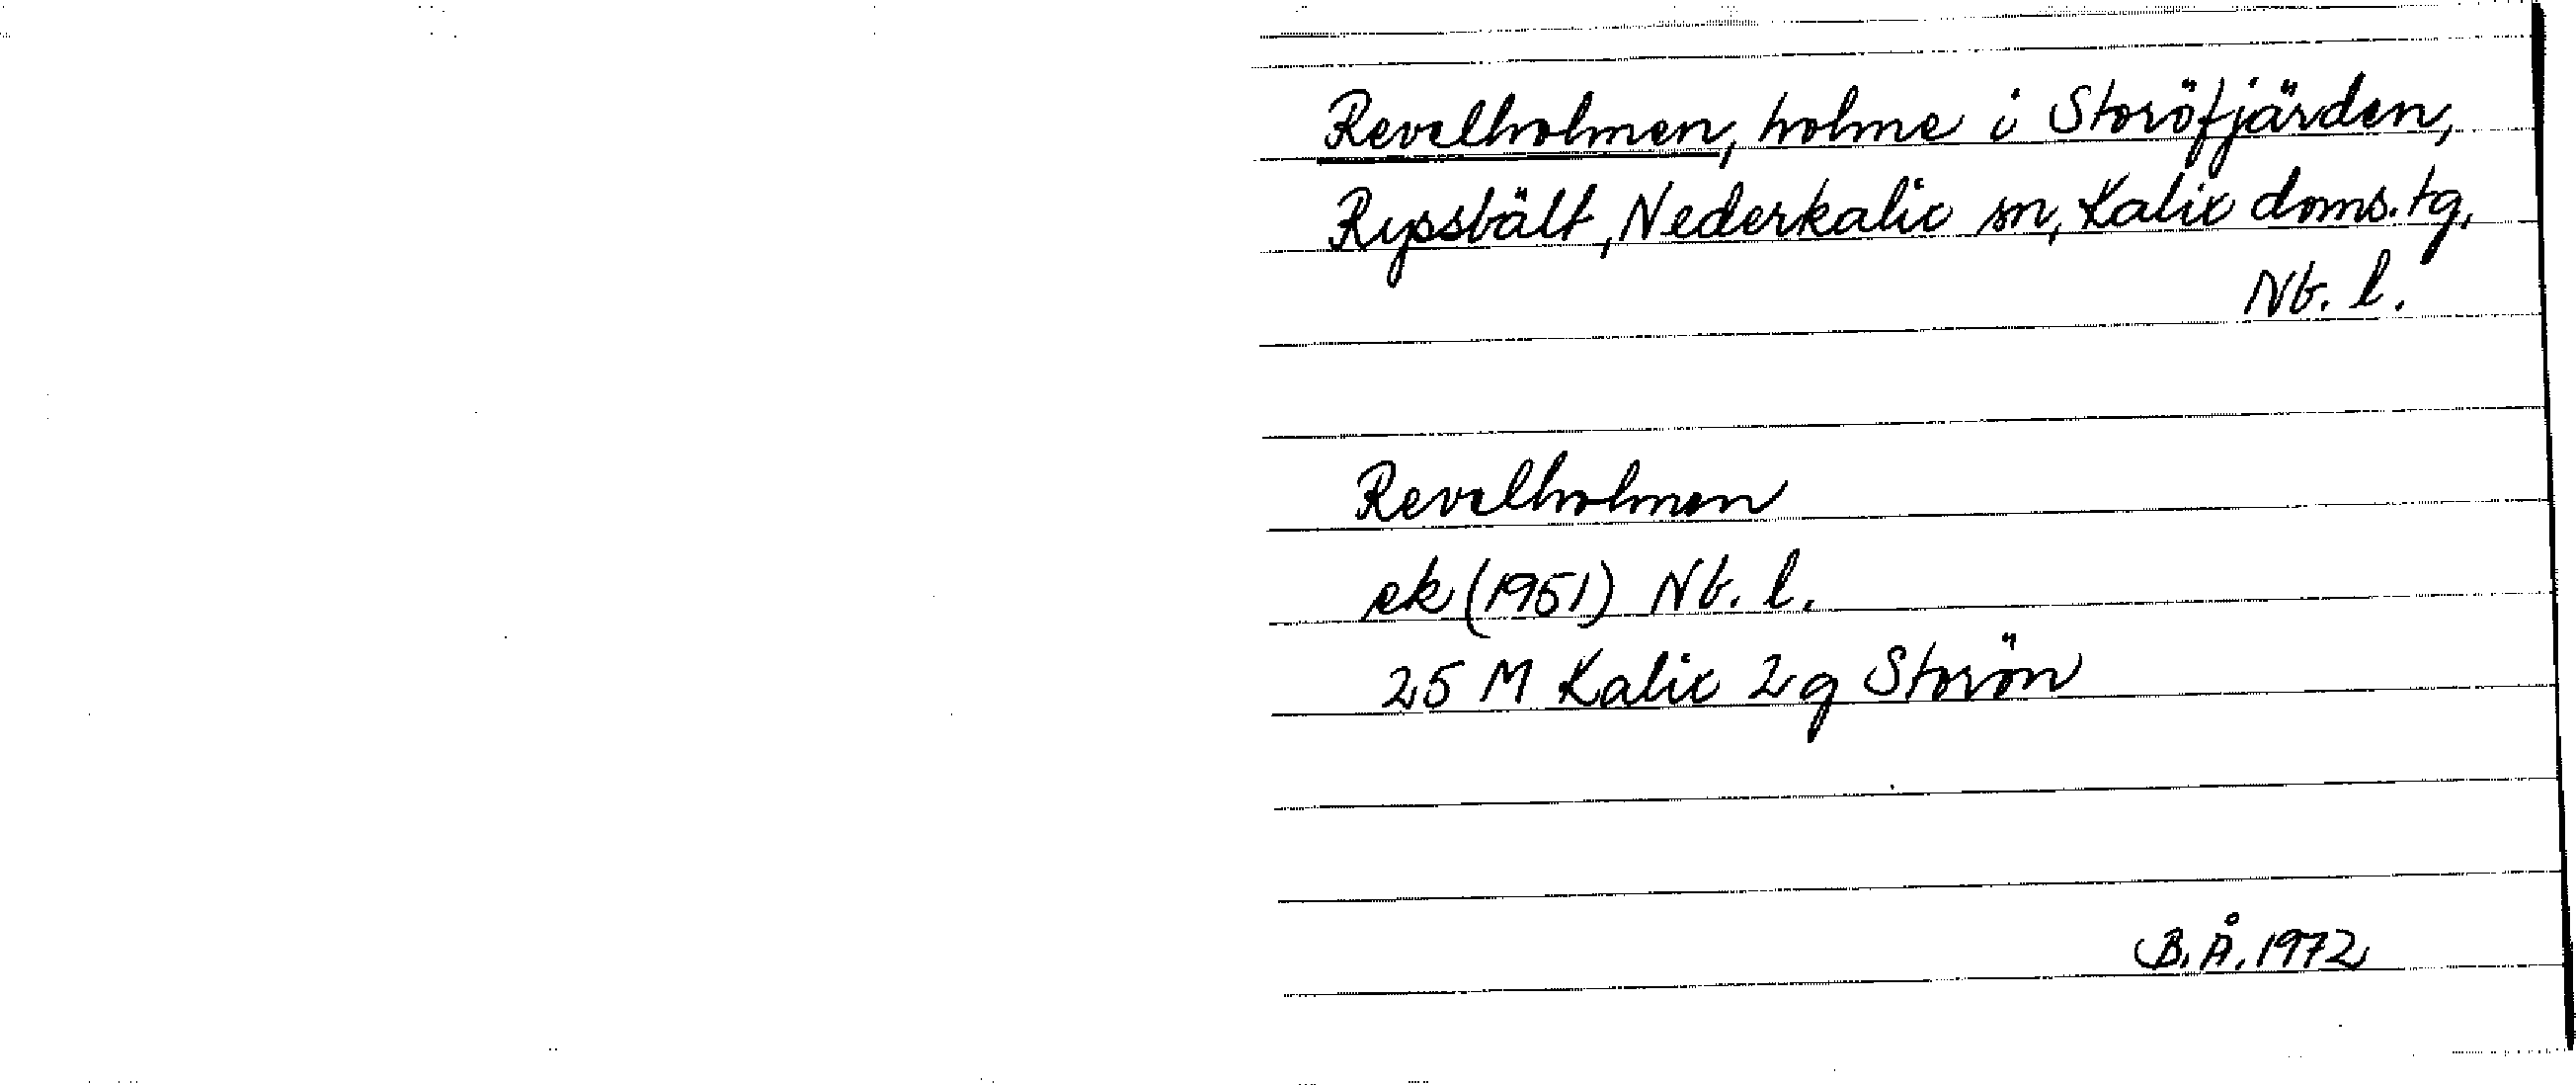 Revelholmen, holme i Storöfjärden,
Ryssbält, Nederkalix sn, Kalix doms. tg,
Nb. l.
Revelholmen
ek (1951) Nb. l.
25 M Kalix 2g Storön
B. Å. 1972